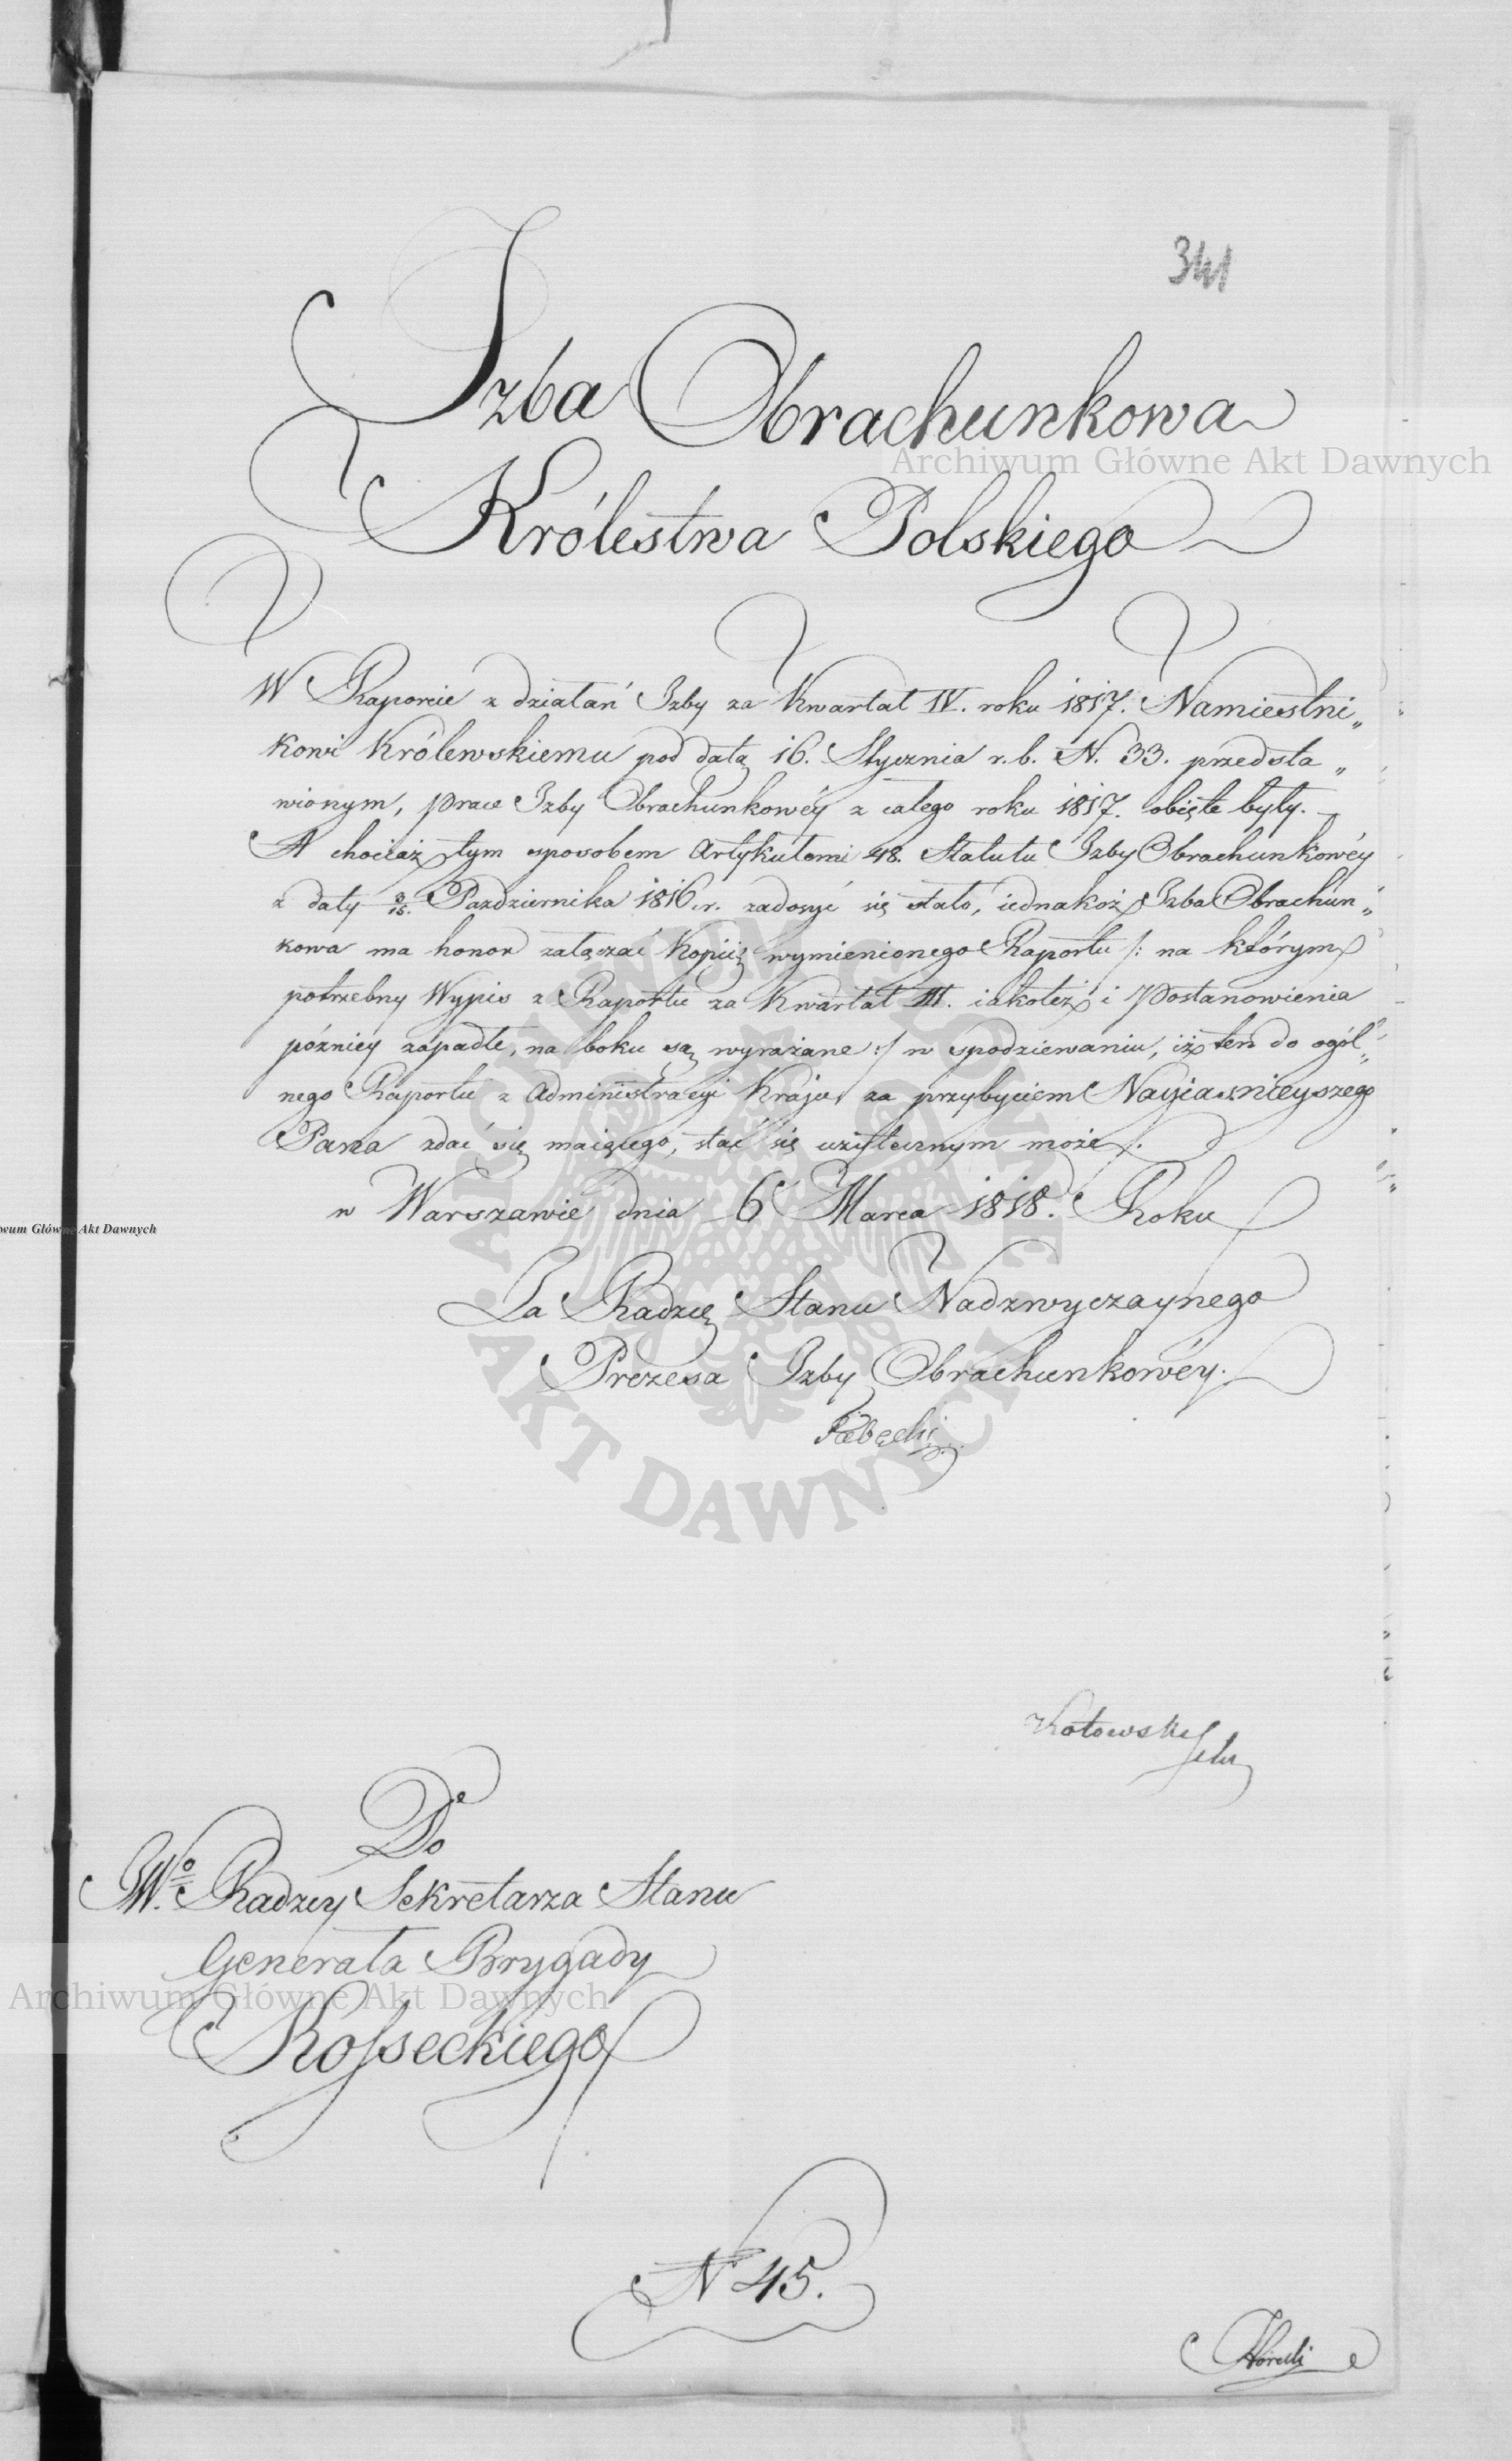 341
Izba Obrachunkowa
Archiwum Główne Akt Dawnych
Królestwa Polskiego
W Raporcie z działań Izby za Kwartał IV. roku 1817. Namiestni„
kowi Królewskiemu pod datą 16. Stycznia r. b. N. 33. przedsta„
wionym, prace Izby Obrachunkowéy z całego roku 1817. obięte były.
A chociaż tym sposobem Artykułowi 48. Statutu Izby Obrachunkowéy
z daty 3/15. Pazdziernika 1816. r. zadosyć się stało, iednakoż Izba Obrachun„
kowa ma honor załączać Kopiię wymienionego Raportu /: na którym
potrzebny Wypis z Raportu za Kwartał III. iakoteż i Postanowienia
późniey zapadłe, na boku są wyrażane :/ w spodziewaniu, iż ten do ogól„
nego Raportu z Administracyi Kraju, za przybyciem Nayiaśnieyszego
Pana zdać się maiącego, stać się użytecznym może.
w Warszawie dnia 6 Marca 1818. Roku
wum Główne Akt Dawnych
Za Radzcę Stanu Nadzwyczaynego
Prezesa Izby Obrachunkowéy.
AKT DAWNYCH
Do
JWo. Radzcy Sekretarza Stanu
Generała Brygady
Archiwum Główne Akt Dawnych
Kosseckiego
N 45.